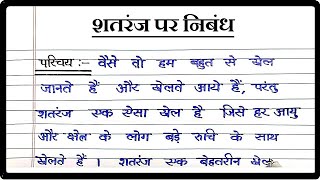 शतरंज पर निबंध
परिचय :- वैसे तो हम बहुत से खेल
जानते हैं और खेलते आये हैं, परंतु
शतरंज एक ऐसा खेल है जिसे हर आयु
और क्षेत्र के लोग बड़े रुचि के साथ
खेलते हैं । शतरंज एक बेहतरीन खेल